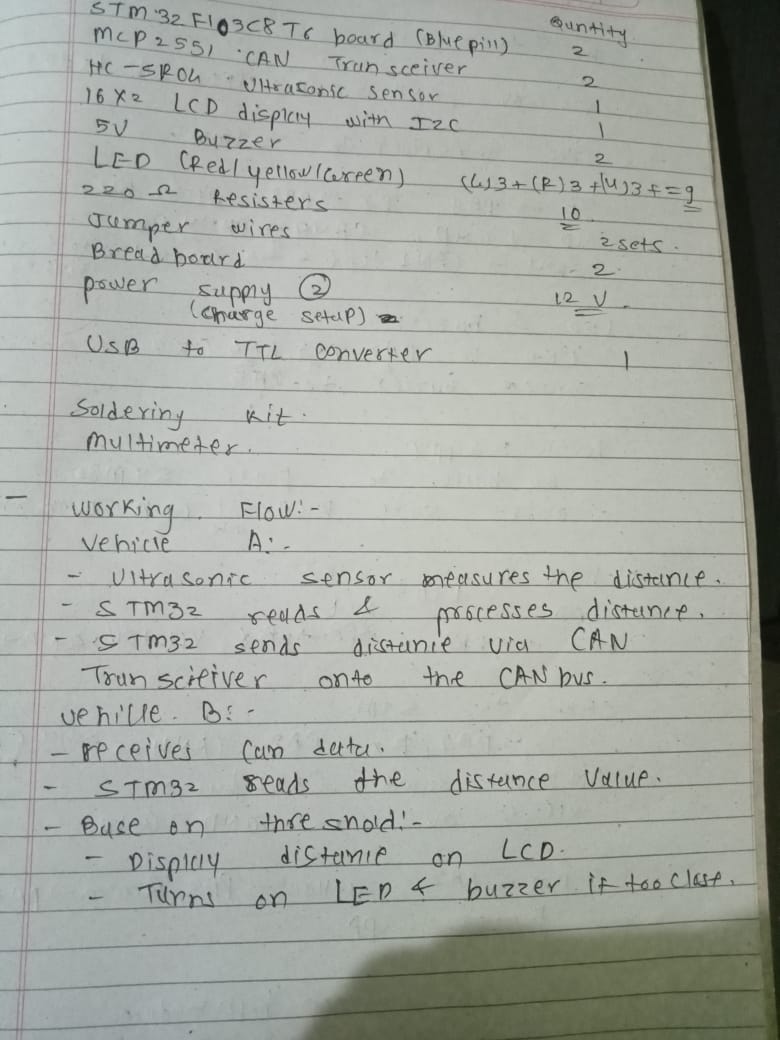 STM32F103C8T6 board (Bluepill) 2
Quntity
MCP2551 CAN Transceiver 2
HC-SR04 Ultrasonic sensor 1
16x2 LCD display with I2C 1
5V Buzzer 2
LED (Red/yellow/Green) 3+(R)3+ 3 = 9
220 Ω Resisters 10
Jumper wires 2 sets.
Bread board 2
power supply ② 12 V.
(charge setup)
USB to TTL converter 1
Soldering kit.
multimeter.
— working Flow:-
vehicle A:-
- Ultrasonic sensor measures the distance.
- STM32 reads & processes distance.
- STM32 sends distance via CAN
Transcieiver onto the CAN bus.
vehicle. B:-
- receives Can data.
- STM32 reads the distance value.
- Base on threshold:-
- Display distance on LCD.
- Turns on LED & buzzer if too close.